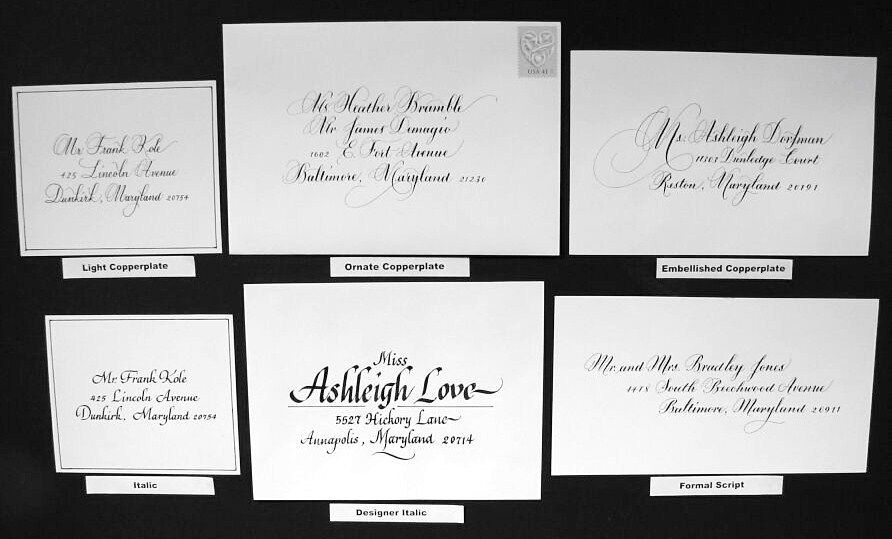 Mr. Frank Kole
425 Lincoln Avenue
Dunkirk, Maryland 20754
Light Copperplate
USA 41
Ms Heather Bramble
Mr James Dimagio
1602 E Fort Avenue
Baltimore, Maryland 21230
Ornate Copperplate
Ms. Ashleigh Dorfman
11301 Dunledge Court
Reston, Maryland 20191
Embellished Copperplate
Mr. Frank Kole
425 Lincoln Avenue
Dunkirk, Maryland 20754
Italic
Miss
Ashleigh Love
5527 Hickory Lane
Annapolis, Maryland 20714
Designer Italic
Mr. and Mrs. Bradley Jones
1418 South Beechwood Avenue
Baltimore, Maryland 20911
Formal Script